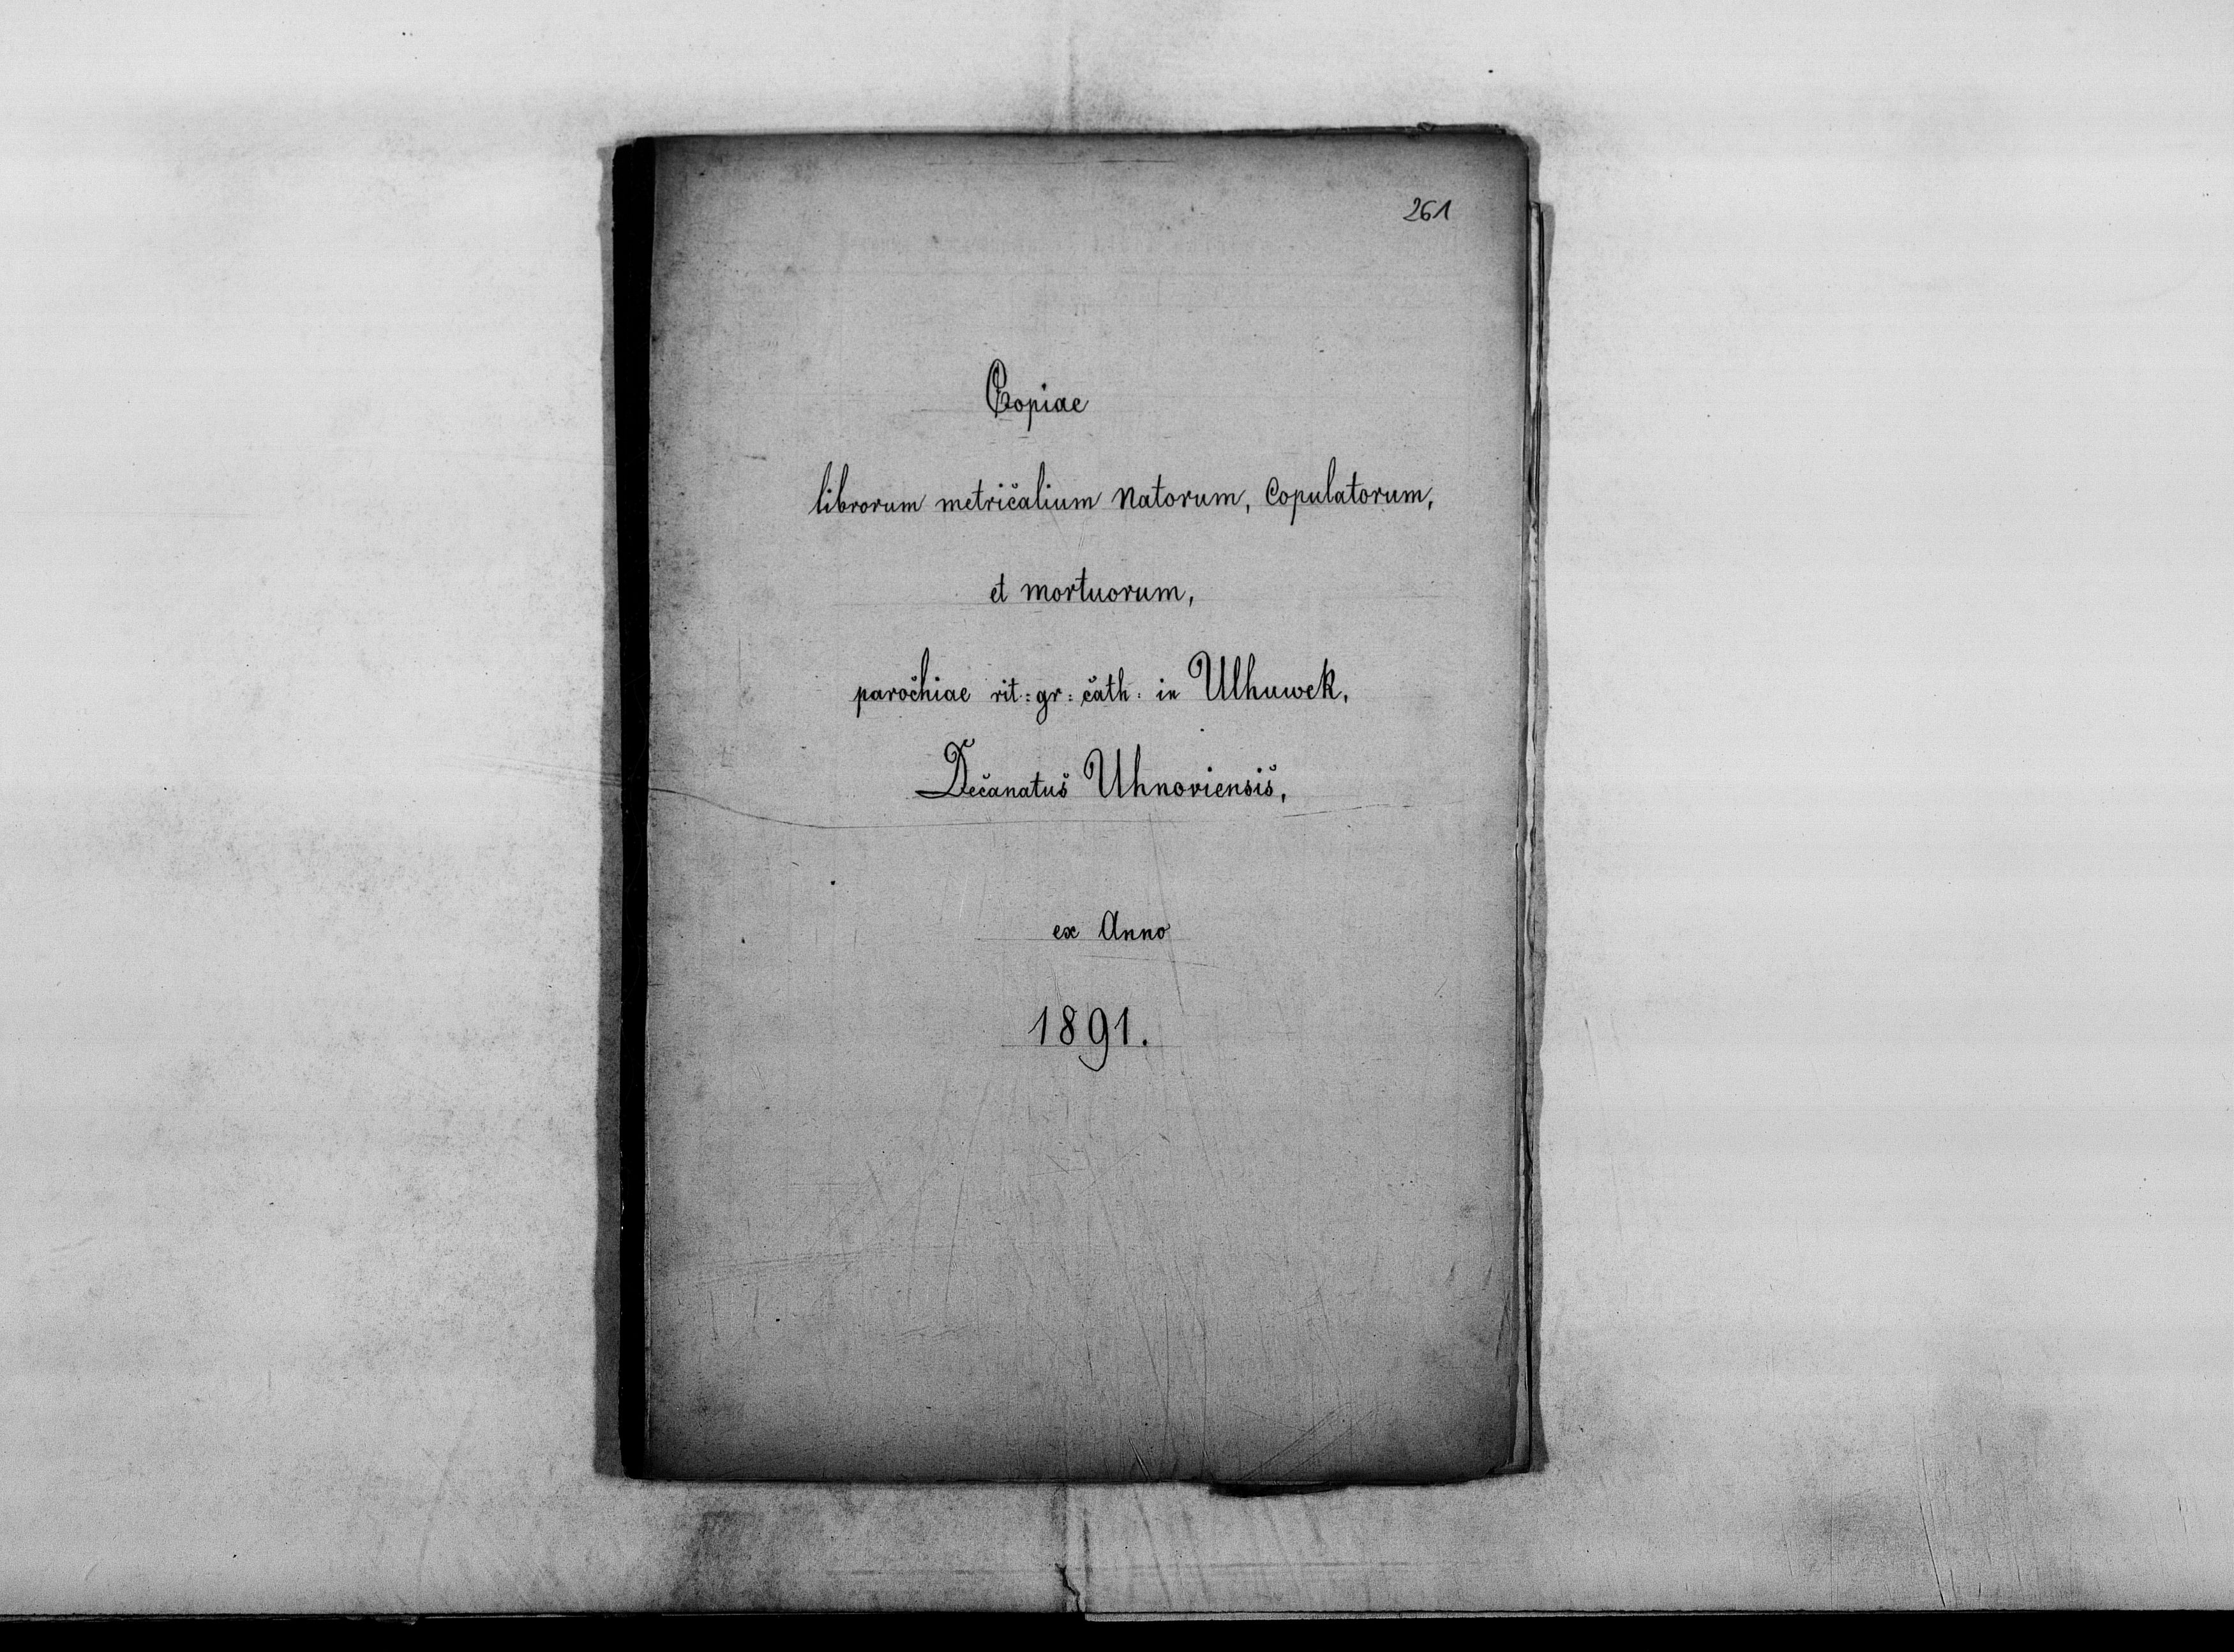 261
Copiae
librorum metricalium Natorum, Copulatorum,
et mortuorum,
parochiae rit: gr: cath: in Ulhuwek,
Decanatus Uhnoviensis,
ex Anno
1891.